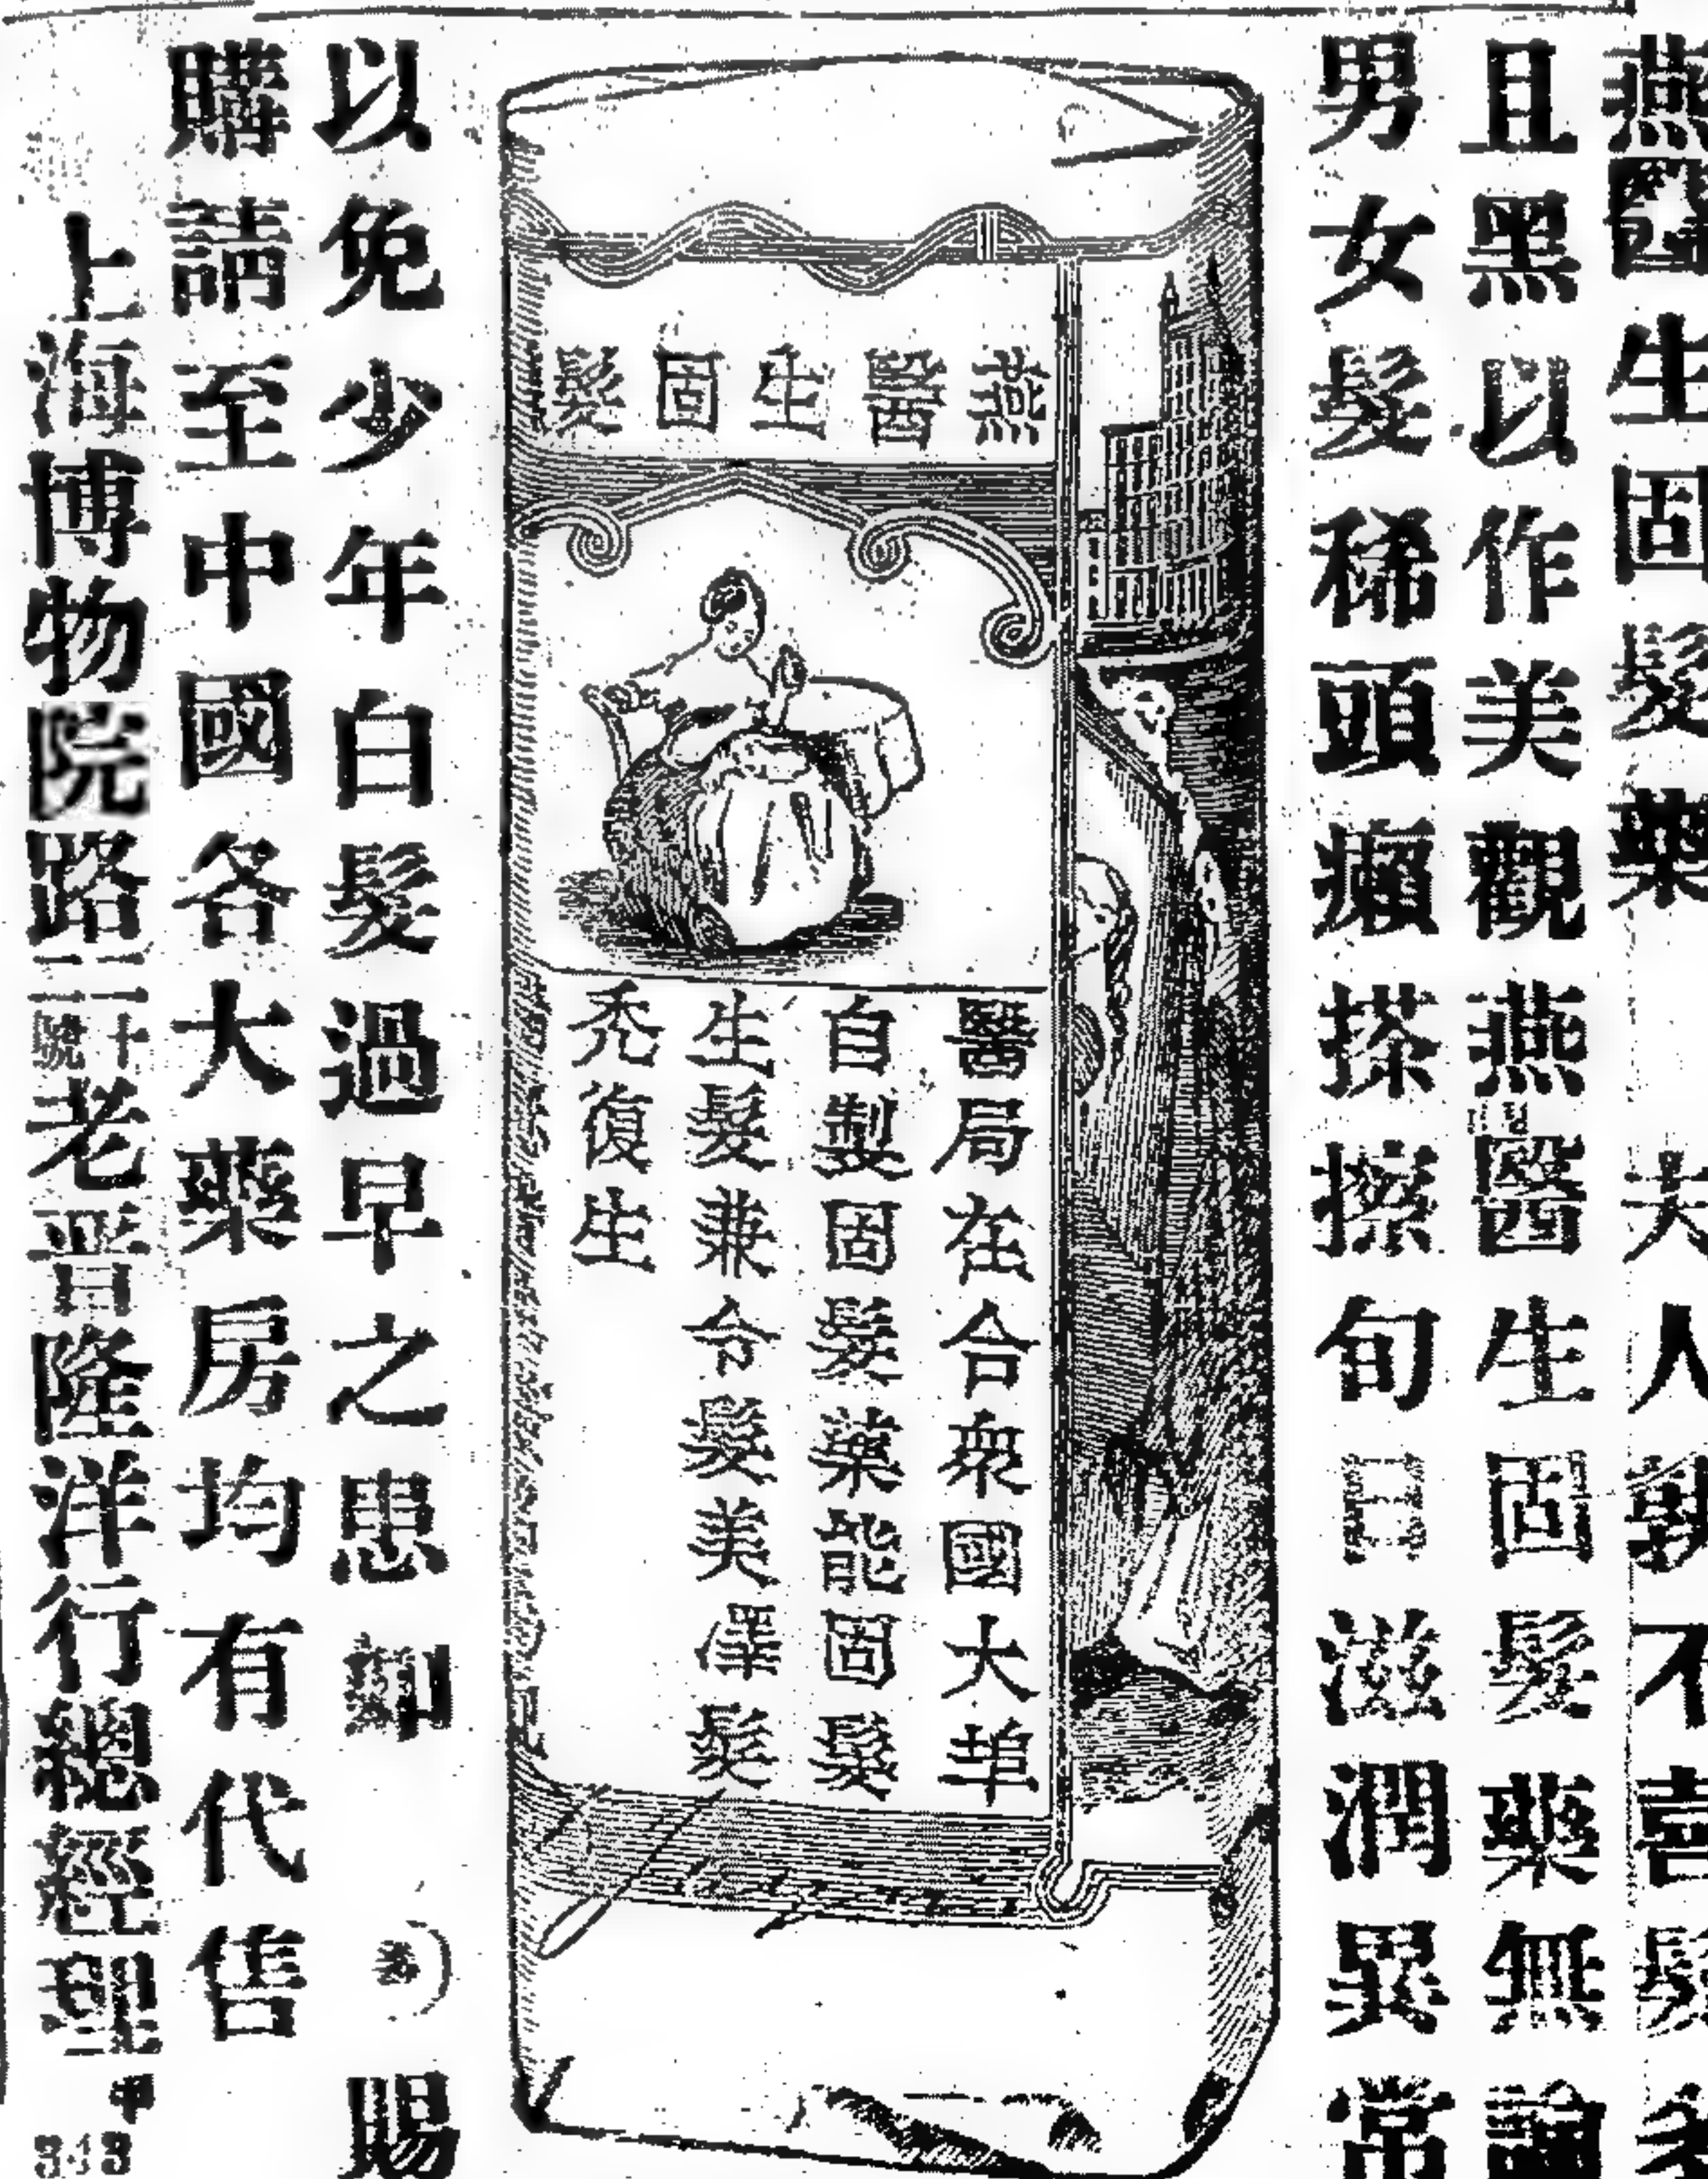 燕醫生固髮藥 夫人孰不喜髮多
且黑以作美觀燕醫生固髮藥無論
男女髮稀頭癩搽擦旬日滋潤異常
燕醫生固髮
醫局在合衆國大埠
自製固髮藥能固髮
生髮兼令髮美澤髮
禿復生
以免少年白髮過早之患 賜
購請至中國各大藥房均有代售
上海博物院路二十二號老晋隆洋行總經理
343